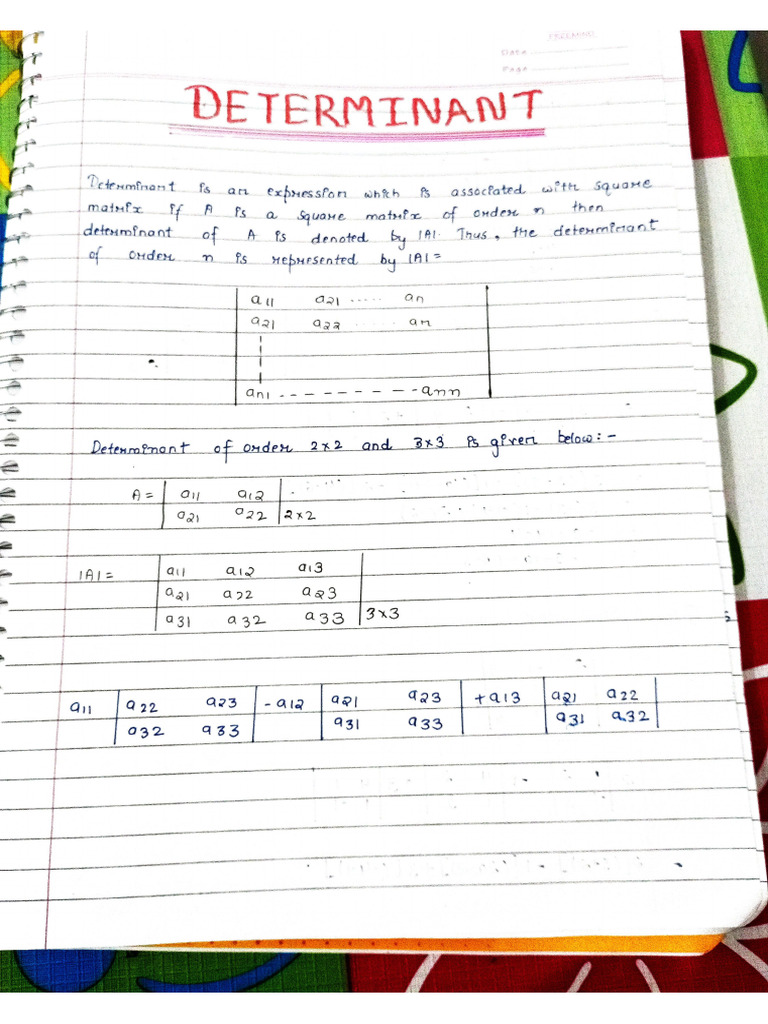 Date
Page
DETERMINANT
Determinant is an expression which is associated with square
matrix if A is a square matrix of order n then
determinant of A is denoted by |A|. Thus, the determinant
of order n is represented by |A| =
a11 a21 ..... an
a21 a22 ..... an
an1 - - - - - - - - - ann
Determinant of order 2×2 and 3×3 is given below:-
A = | a11 a12 |
| a21 a22 | 2×2
|A| = | a11 a12 a13 |
| a21 a22 a23 |
| a31 a32 a33 | 3×3
a11 | a22 a23 | - a12 | a21 a23 | + a13 | a21 a22 |
| a32 a33 | | a31 a33 | | a31 a32 |